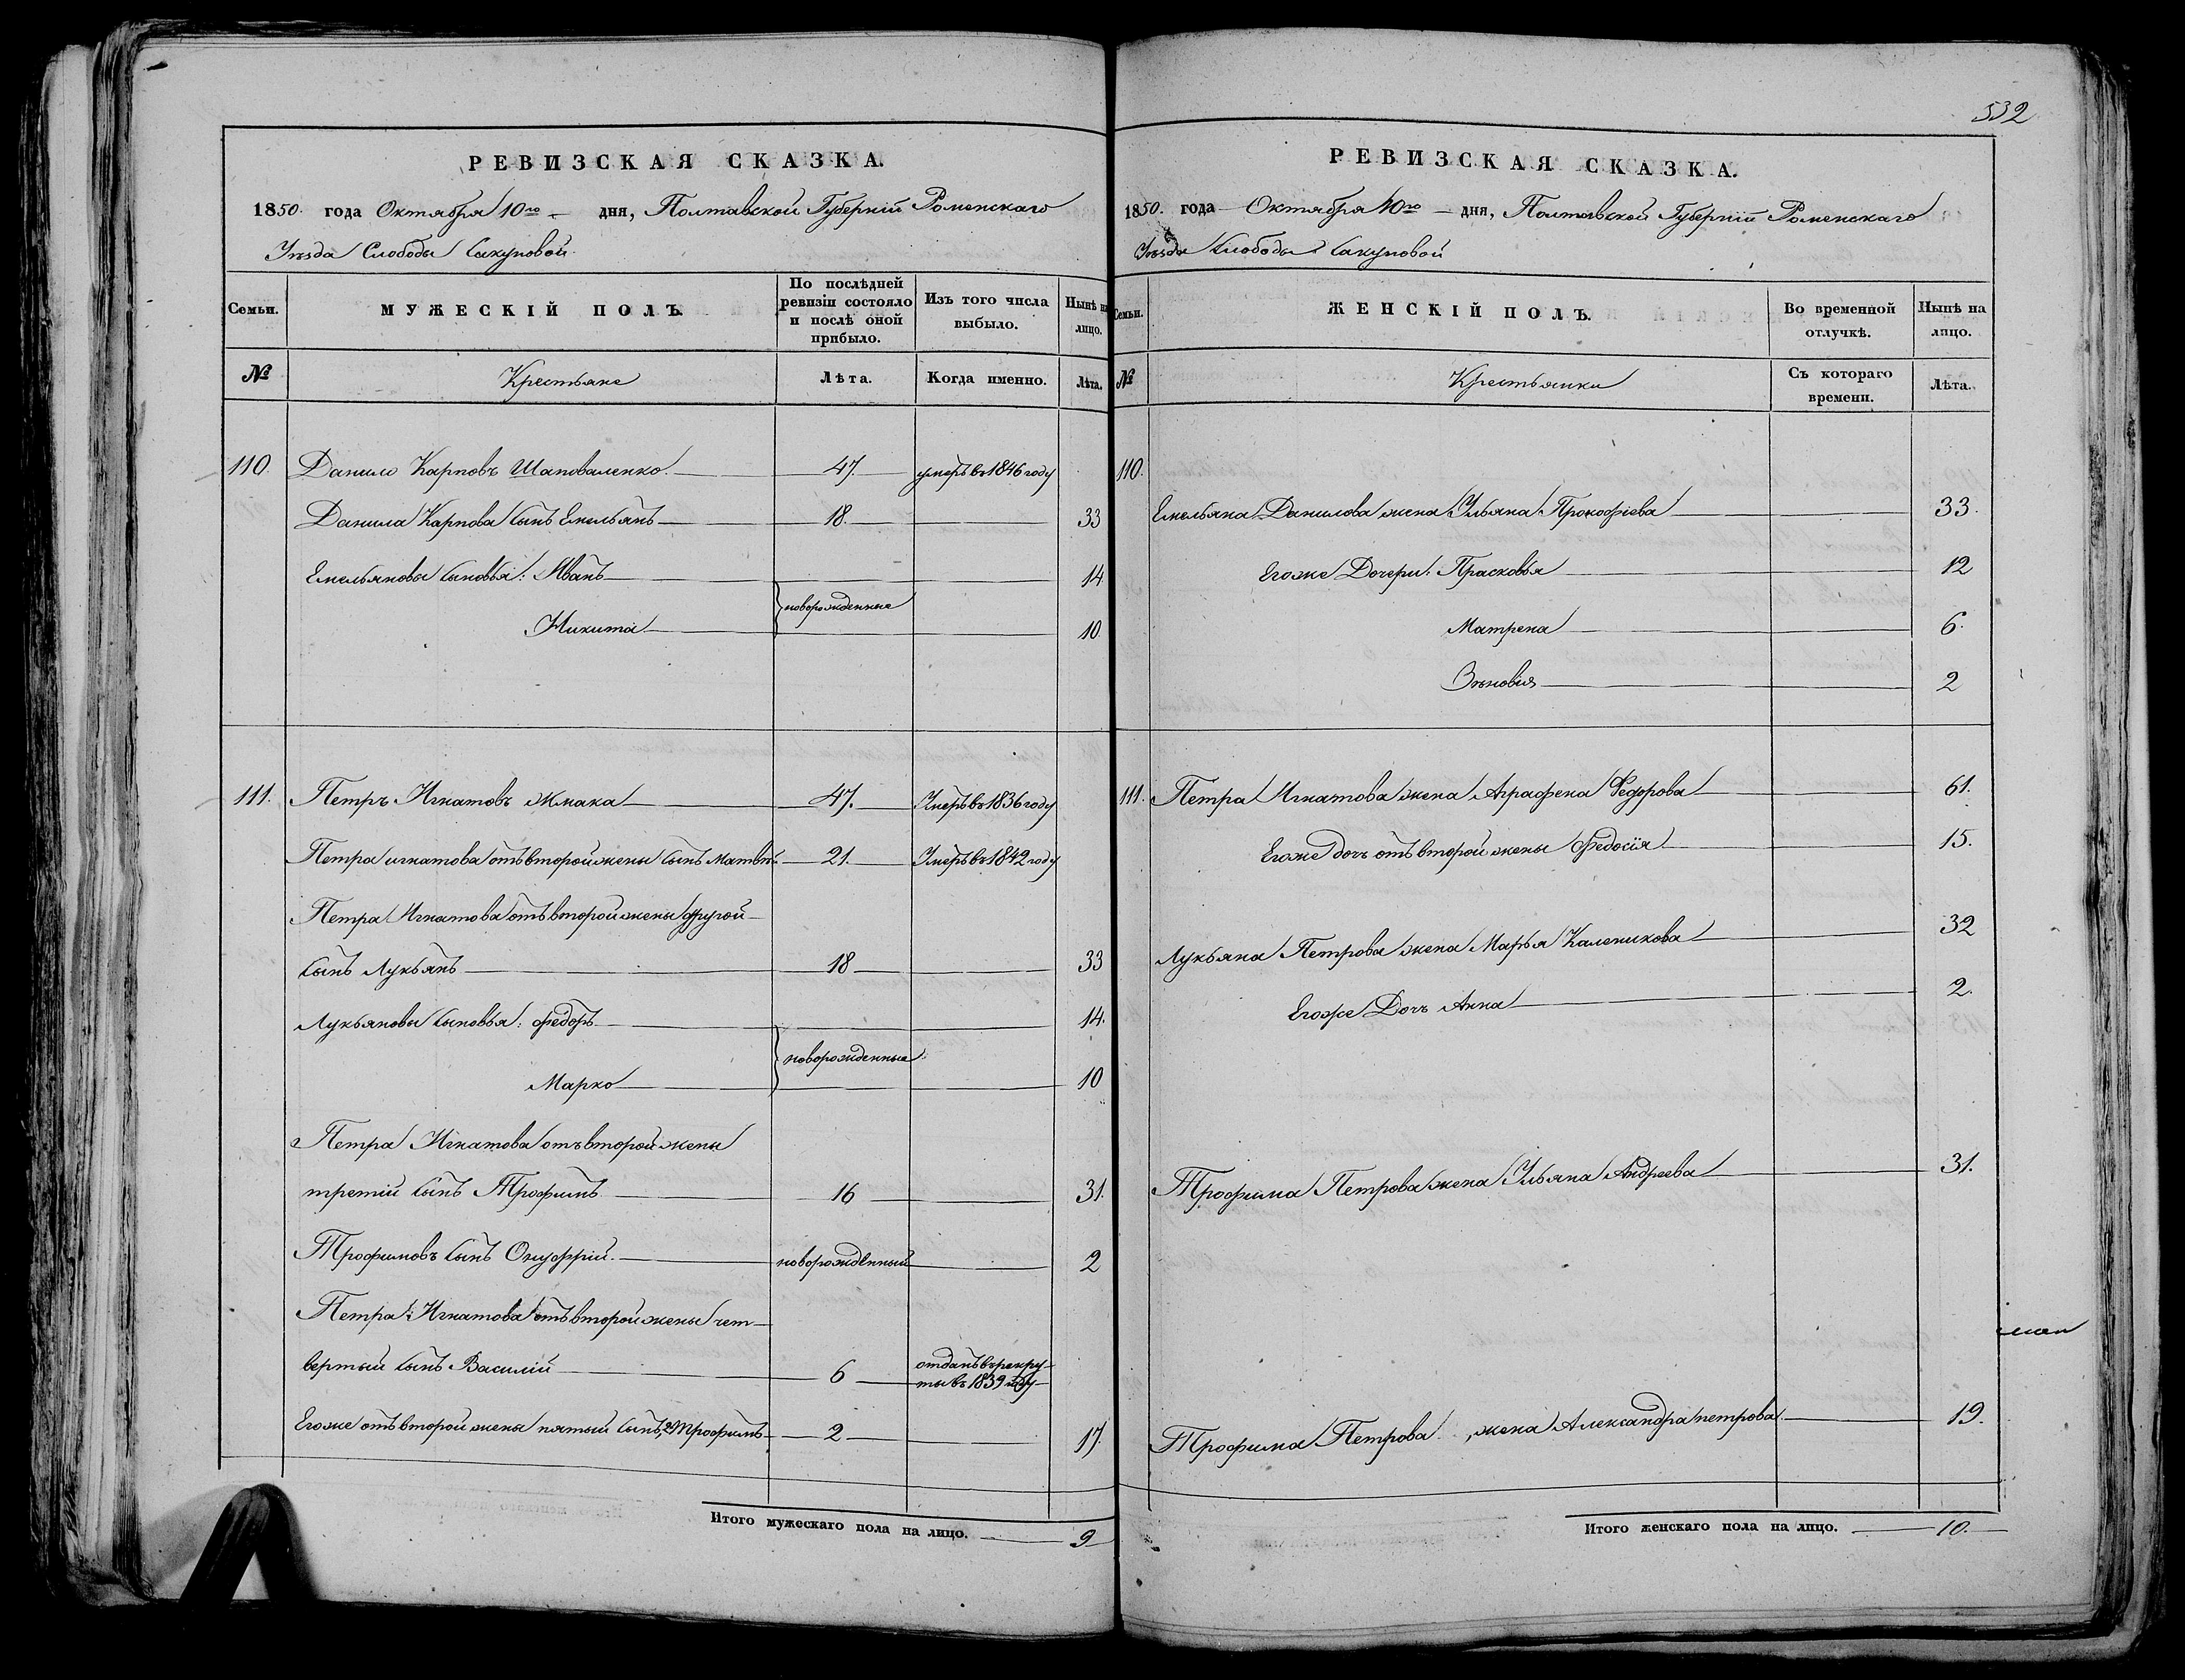 РЕВИЗСКАЯ СКАЗКА.
1850. года Октября 10го дня, Полтавской Губерніи Роменскаго
Уѣзда Слободы Сакуновой
Семьи. МУЖЕСКІЙ ПОЛЪ. По послѣдней ревизіи состояло и послѣ оной прибыло. Изъ того числа выбыло. Нынѣ на лицо.
№ Крестьяне Лѣта. Когда именно. Лѣта.
110. Данило Карповъ Шаповаленко 47. умеръ въ 1846 году
Данила Карпова сынъ Емельянъ 18. 33
Емельяновы сыновья: Иванъ 14
новорожденные
Никита 10
111. Петръ Игнатовъ Жмака 47. Умеръ въ 1836 году
Петра игнатова отъ второй жены сынъ Матвѣй 21. Умеръ въ 1842 году
Петра Игнатова отъ второй жены другой
сынъ Лукьянъ 18 33
Лукьяновы сыновья: Федоръ 14.
новорожденные
Марко 10
Петра Игнатова отъ второй жены
третій сынъ Трофимъ 16 31.
Трофимовъ сынъ Онуфрій новорожденный 2
Петра Игнатова отъ второй жены чет-
вертый сынъ Василій 6 отданъ въ рекру-
ты въ 1839 году
Егоже отъ второй жены пятый сынъ, 2й Трофимъ 2 17.
Итого мужескаго пола на лицо. 9
532
РЕВИЗСКАЯ СКАЗКА.
1850. года Октября 10го дня, Полтавской Губерніи Роменскаго
Уѣзда Слободы Сакуновой
Семьи. ЖЕНСКІЙ ПОЛЪ. Во временной отлучкѣ. Нынѣ на лицо.
№ Крестьянки Съ котораго времени. Лѣта.
110.
Емельяна Данилова жена Ульяна Прокофіева 33.
Егоже Дочери: Прасковья 12
Матрена 6.
Зѣновія 2
111. Петра Игнатова жена Аграфена Федорова 61.
Егоже дочь отъ второй жены Федосія 15.
Лукьяна Петрова жена Марья Каленикова 32
Егоже Дочь Анна 2.
Трофима Петрова жена Ульяна Андреева 31.
Трофима Петрова, жена Александра петрова 19.
Итого женскаго пола на лицо. 10.